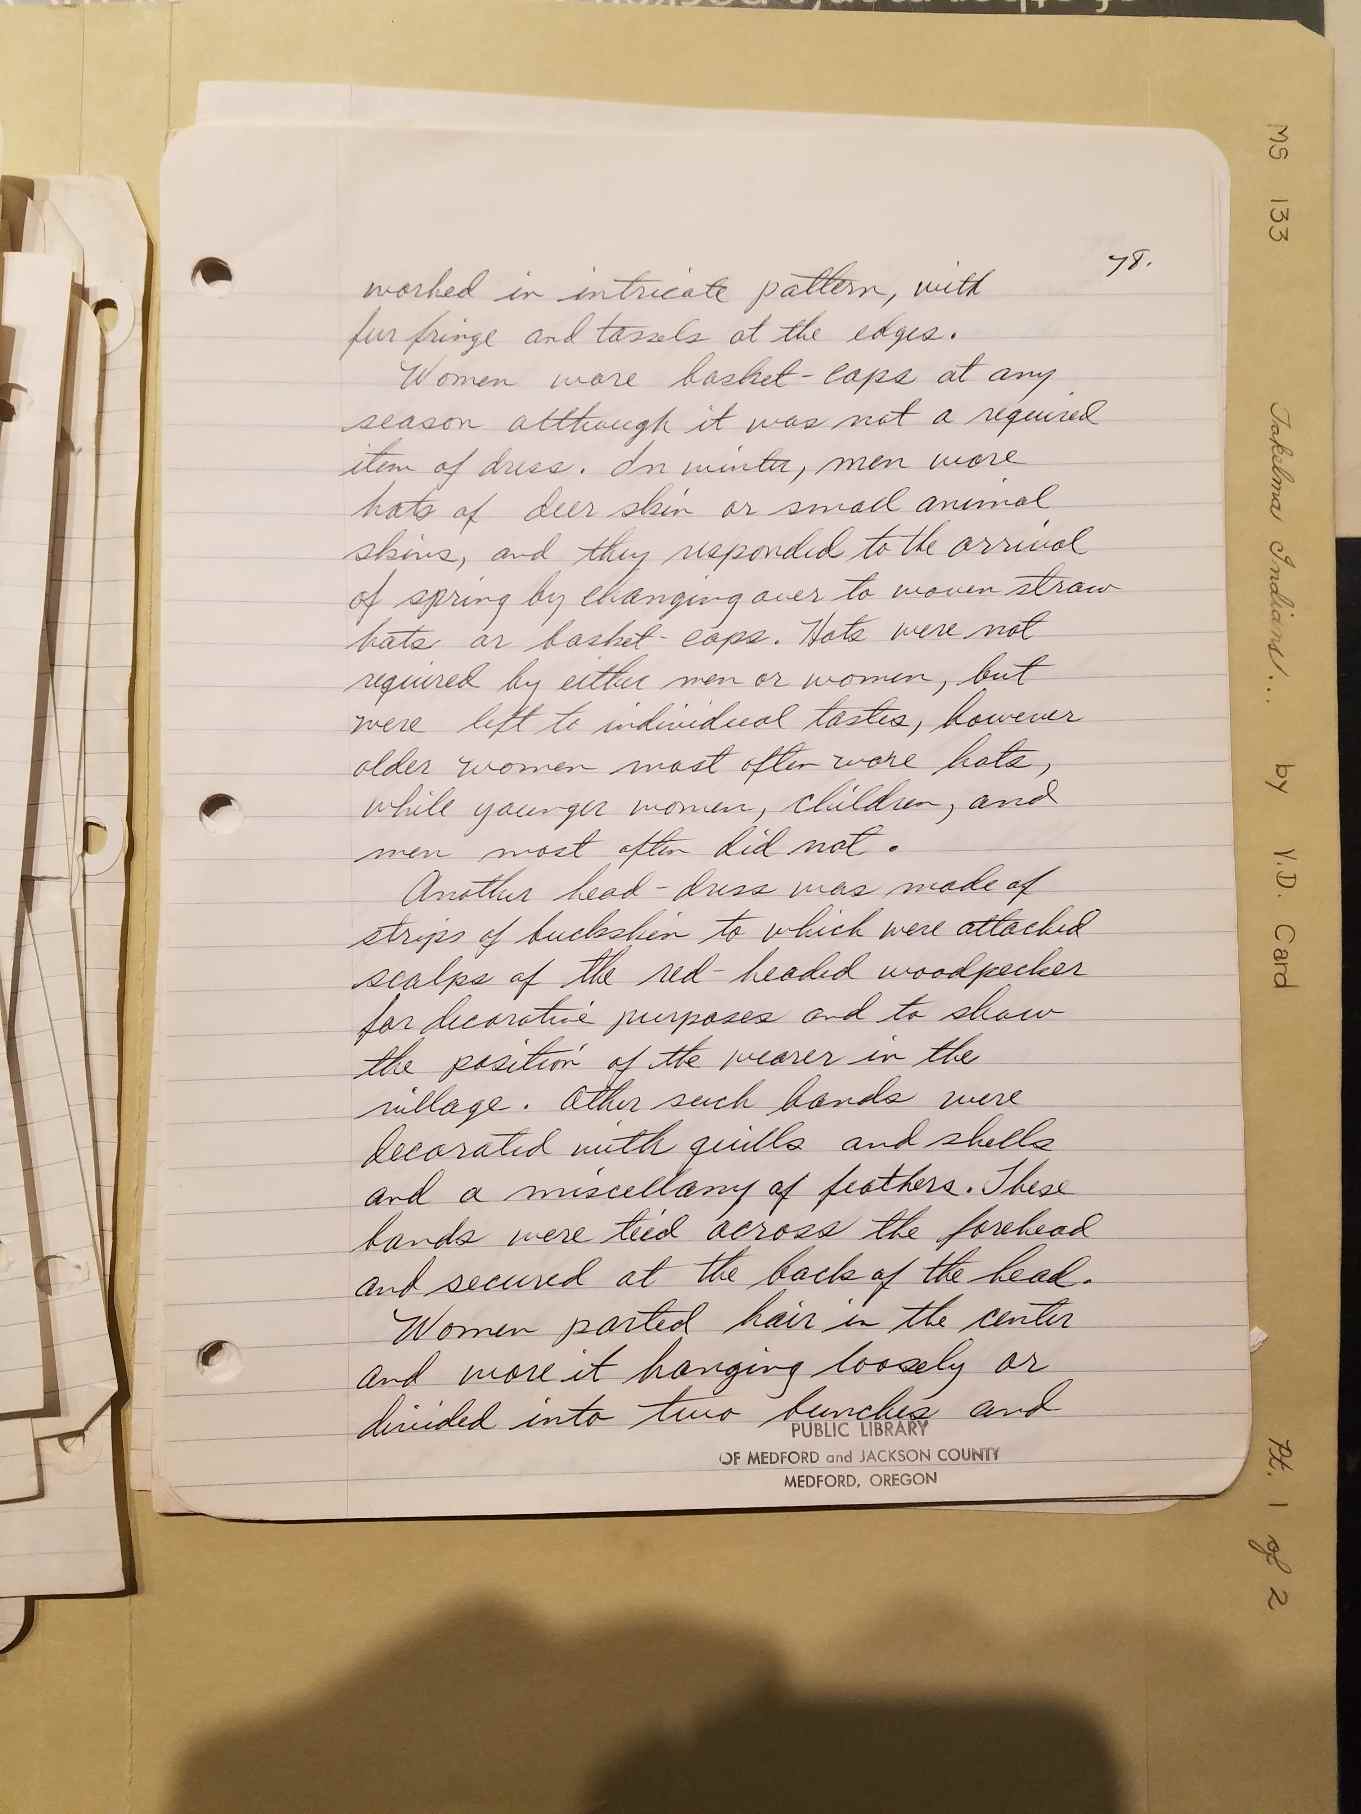 78.
worked in intricate pattern, with
fur fringe and tassels at the edges.
Women wore basket-caps at any
season although it was not a required
item of dress. In winter, men wore
hats of deer skin or small animal
skins, and they responded to the arrival
of spring by changing over to woven straw
hats or basket-caps. Hats were not
required by either men or women, but
were left to individual tastes, however
older women most often wore hats,
while younger women, children, and
men most often did not.
Another head-dress was made of
strips of buckskin to which were attached
scalps of the red-headed woodpecker
for decorative purposes and to show
the position of the wearer in the
village. Other such bands were
decorated with quills and shells
and a miscellany of feathers. These
bands were tied across the forehead
and secured at the back of the head.
Women parted hair in the center
and wore it hanging loosely or
divided into two bunches and
PUBLIC LIBRARY
OF MEDFORD and JACKSON COUNTY
MEDFORD, OREGON
MS 133 Takelma Indians... by Y.D. Card Pt. 1 of 2